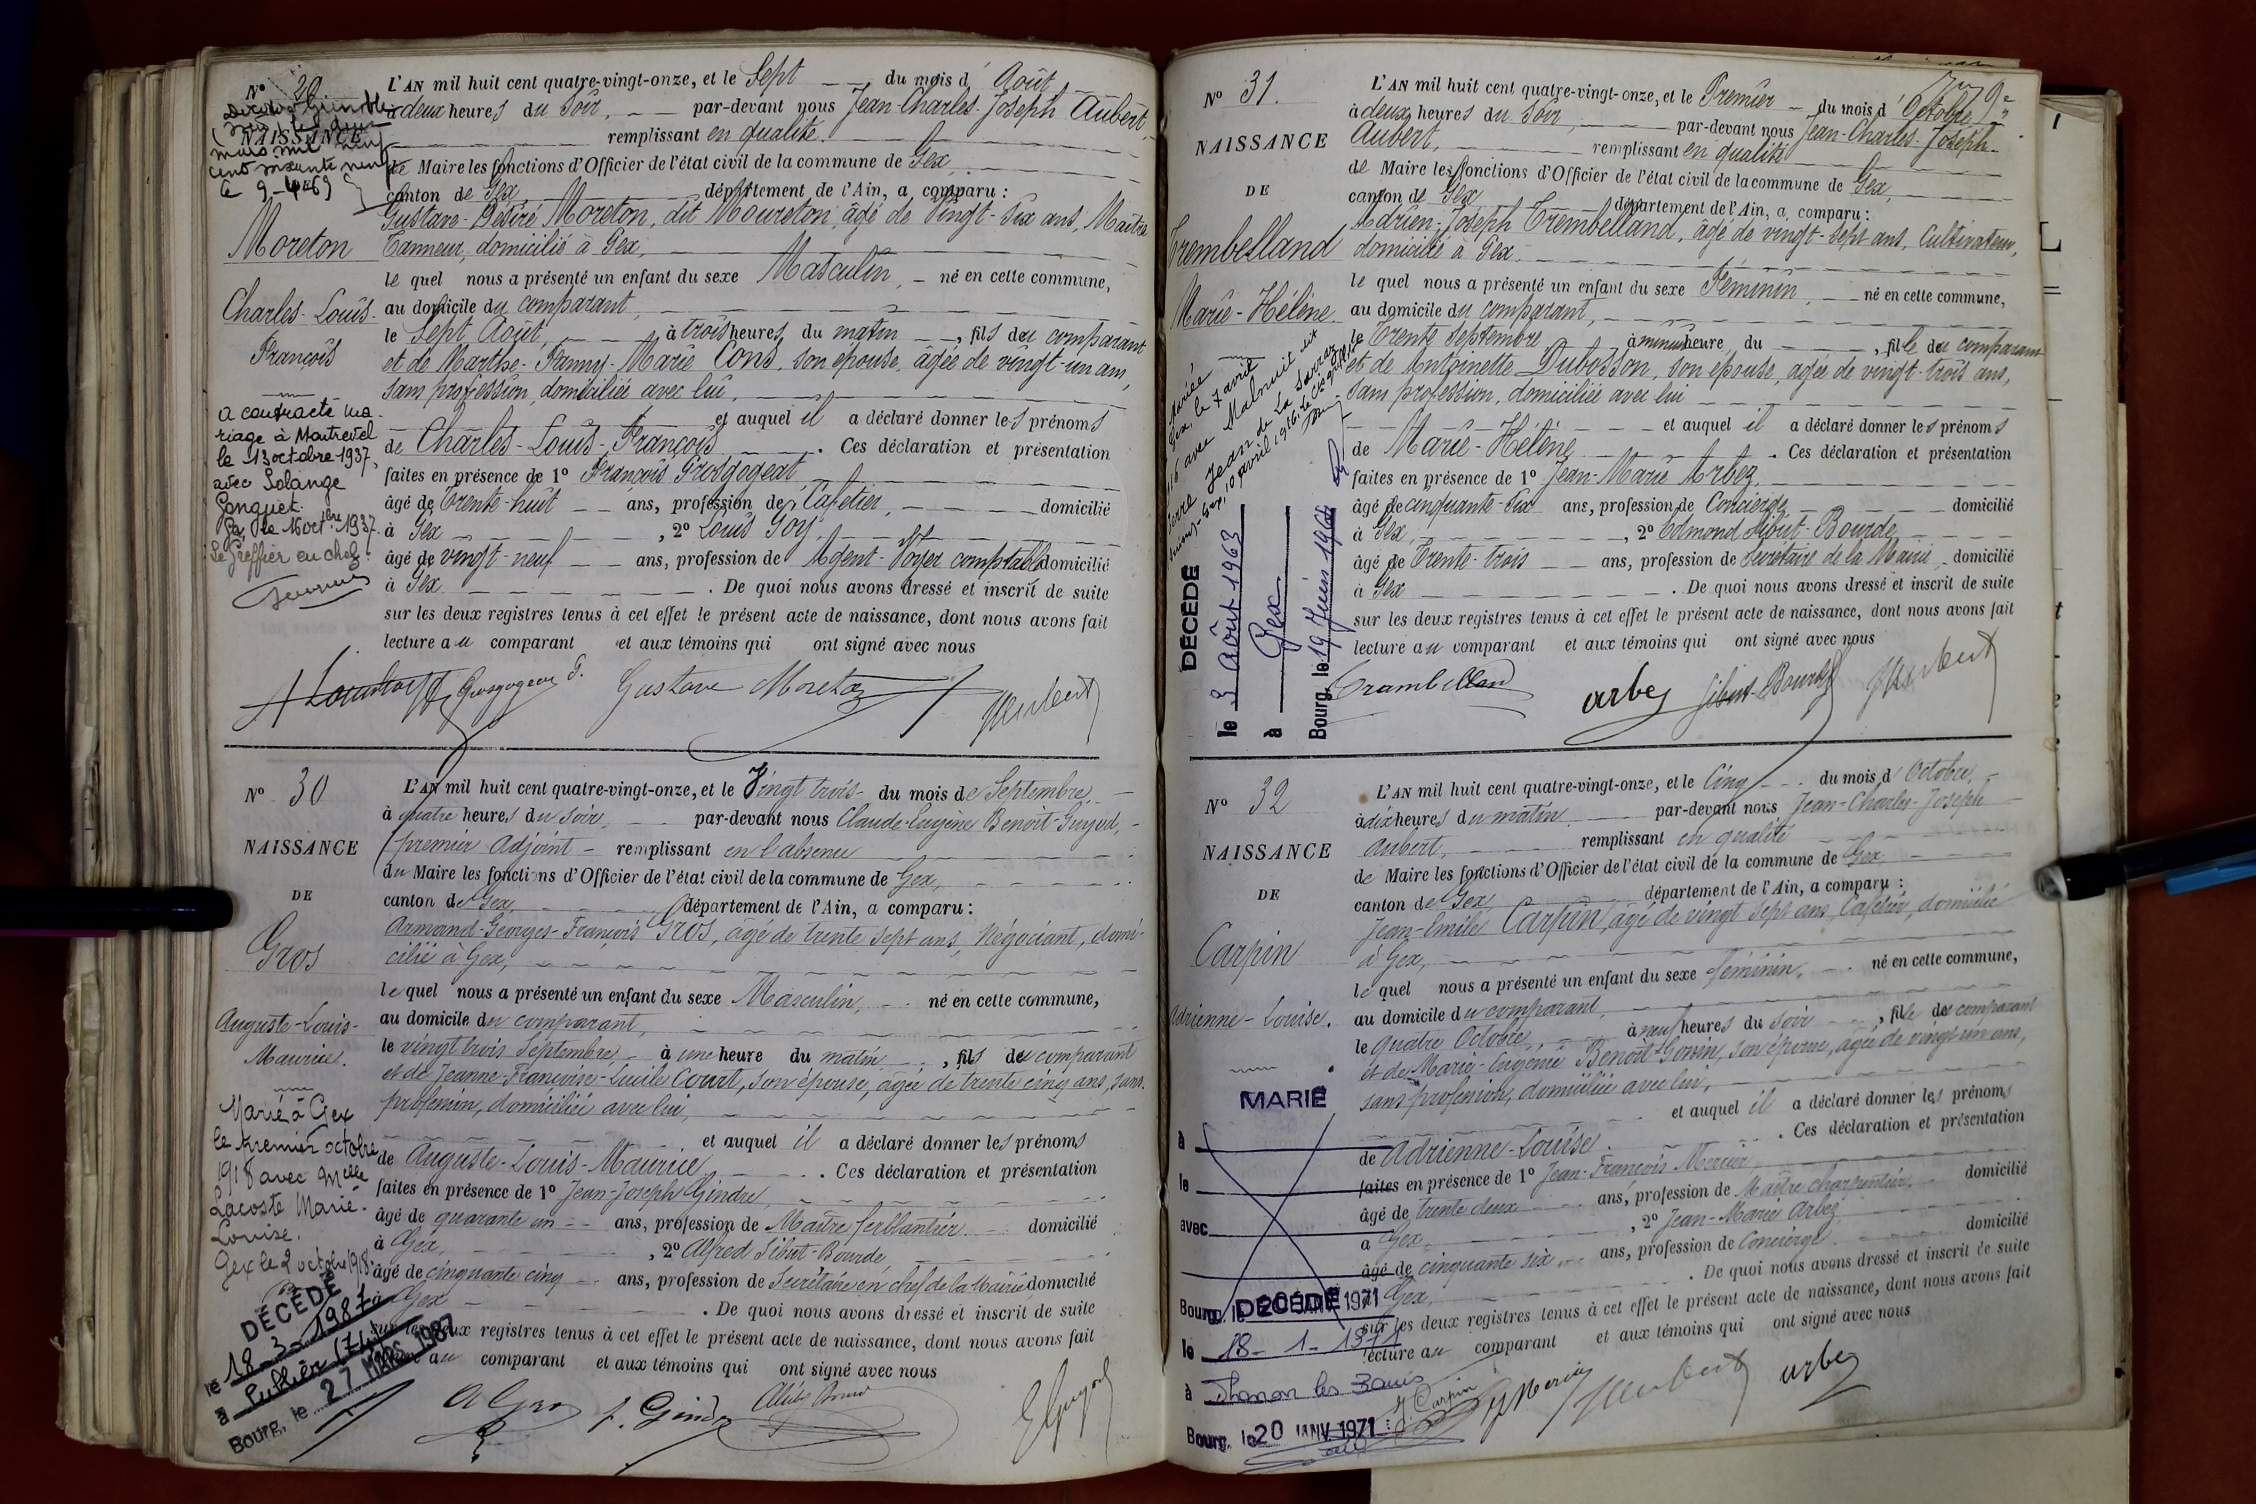 N° 29
L'AN mil huit cent quatre-vingt-onze, et le Sept du mois d'Août
à deux heures du Soir, par-devant nous Jean-Charles-Joseph Aubert
remplissant en qualité
de Maire les fonctions d'Officier de l'état civil de la commune de Gex,
canton de Gex département de l'Ain, a comparu :
Gustave-Désiré Moreton, dit Moureton, âgé de Vingt-six ans, Maître
Tanneur, domicilié à Gex,
le quel nous a présenté un enfant du sexe Masculin, né en cette commune,
au domicile du comparant,
le Sept Août, à trois heures du matin, fils du comparant
et de Marthe-Fanny-Marie Cons, son épouse, âgée de vingt-un ans,
sans profession, domiciliée avec lui,
et auquel il a déclaré donner les prénoms
de Charles-Louis-François. Ces déclaration et présentation
faites en présence de 1° François Grosgogeat
âgé de Trente-huit ans, profession de Cafetier, domicilié
à Gex, 2° Louis Goy,
âgé de vingt-neuf ans, profession de Agent-Voyer comptable domicilié
à Gex. De quoi nous avons dressé et inscrit de suite
sur les deux registres tenus à cet effet le présent acte de naissance, dont nous avons fait
lecture au comparant et aux témoins qui ont signé avec nous
Gustave Moreton
NAISSANCE
mars mil neuf
cent soixante neuf
le 9-4-69
Moreton
Charles-Louis-
François
a contracté ma-
riage à Montrevel
le 13 octobre 1937,
avec Solange
Gonguet.
Gex, le 16 octbre 1937.
Le Greffier en chef
N° 30
NAISSANCE
DE
Gros
Auguste-Louis-
Maurice.
Marié à Gex
le premier octobre
1918 avec Melle
Lacoste Marie-
Louise.
Gex le 2 octobre 1918.
DÉCÉDÉ
le 18-3-1987
à Lullier (74)
Bourg, le 27 MARS 1987
L'AN mil huit cent quatre-vingt-onze, et le Vingt trois du mois de Septembre
à quatre heures du soir, par-devant nous Claude-Eugène Benoit-Guyod,
premier Adjoint remplissant en l'absence
du Maire les fonctions d'Officier de l'état civil de la commune de Gex,
canton de Gex, département de l'Ain, a comparu :
Armand-Georges-François Gros, âgé de trente sept ans, Négociant, domi-
cilié à Gex,
le quel nous a présenté un enfant du sexe Masculin, né en cette commune,
au domicile du comparant,
le vingt trois Septembre à une heure du matin, fils du comparant
et de Jeanne-Françoise-Lucile Court, son épouse, âgée de trente cinq ans, sans
profession, domiciliée avec lui,
et auquel il a déclaré donner les prénoms
de Auguste-Louis-Maurice. Ces déclaration et présentation
faites en présence de 1° Jean-Joseph Gindre,
âgé de quarante un ans, profession de Maître ferblantier domicilié
à Gex, 2° Alfred Sibut-Bourde
âgé de cinquante cinq ans, profession de Secrétaire en chef de la Mairie domicilié
à Gex. De quoi nous avons dressé et inscrit de suite
sur les deux registres tenus à cet effet le présent acte de naissance, dont nous avons fait
lecture au comparant et aux témoins qui ont signé avec nous
A Gros J. Gindre
N° 31.
NAISSANCE
DE
Trembelland
Marie-Hélène
DÉCÉDÉ
le 3 Août 1963
à Gex
Bourg, le 19 Juin 19
L'AN mil huit cent quatre-vingt-onze, et le Premier du mois d'Octobre
à deux heures du Soir, par-devant nous Jean-Charles-Joseph
Aubert, remplissant en qualité
de Maire les fonctions d'Officier de l'état civil de la commune de Gex,
canton de Gex département de l'Ain, a comparu :
Adrien-Joseph Trembelland, âgé de vingt-sept ans, Cultivateur,
domicilié à Gex,
le quel nous a présenté un enfant du sexe Féminin, né en cette commune,
au domicile du comparant,
le Trente Septembre à minuit heure du, fille du comparant
et de Antoinette Dubosson, son épouse, agée de vingt-trois ans,
sans profession, domiciliée avec lui
et auquel il a déclaré donner les prénoms
de Marie-Hélène. Ces déclaration et présentation
faites en présence de 1° Jean-Marie Arbez,
âgé de cinquante-six ans, profession de Concierge domicilié
à Gex, 2° Edmond Sibut-Bourde
âgé de Trente-trois ans, profession de Secrétaire de la Mairie, domicilié
à Gex. De quoi nous avons dressé et inscrit de suite
sur les deux registres tenus à cet effet le présent acte de naissance, dont nous avons fait
lecture au comparant et aux témoins qui ont signé avec nous
Trambelland arbez Sibut-Bourde
N° 32
NAISSANCE
DE
Carpin
Adrienne-Louise.
MARIÉ
à
le
avec
Bourg, le
DÉCÉDÉ
le 18-1-1971
à Thonon les Bains
Bourg, le 20 JANV. 1971
L'AN mil huit cent quatre-vingt-onze, et le Cinq du mois d'Octobre,
à dix heures du matin par-devant nous Jean-Charles-Joseph
Aubert, remplissant en qualité
de Maire les fonctions d'Officier de l'état civil de la commune de Gex
canton de Gex département de l'Ain, a comparu :
Jean-Emile Carpin, âgé de vingt sept ans, Cafetier, domicilié
à Gex,
le quel nous a présenté un enfant du sexe féminin, né en cette commune,
au domicile du comparant,
le quatre Octobre, à neuf heures du soir, fille du comparant
et de Marie-Eugénie Benoit-Gonin, son épouse, âgée de vingt un ans,
sans profession, domiciliée avec lui,
et auquel il a déclaré donner les prénoms
de Adrienne-Louise. Ces déclaration et présentation
faites en présence de 1° Jean-François Mercier
âgé de trente deux ans, profession de Maître charpentier, domicilié
à Gex, 2° Jean-Marie Arbez
âgé de cinquante six ans, profession de Concierge domicilié
à Gex. De quoi nous avons dressé et inscrit de suite
sur les deux registres tenus à cet effet le présent acte de naissance, dont nous avons fait
lecture au comparant et aux témoins qui ont signé avec nous
J. Carpin arbez